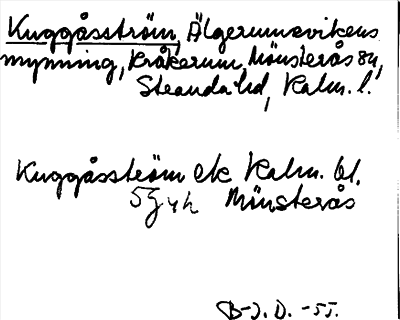 Kuggåsström, Älgerumsvikens
mynning, Kråkerum, Mönsterås sn,
Stranda hd, Kalm. l.
Kuggåsström ek Kalm. bl.
5G4h Mönsterås
B-J. D. -55.